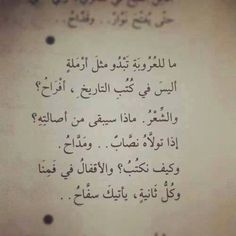 حتّى يُفتّحَ نوّارٌ.. وقدّاحُ..
ما للعُروبَةِ تَبْدُو مثلَ أرْمَلةٍ
أليسَ في كُتُبِ التاريخِ، أفْرَاحُ؟
والشِّعْرُ. ماذا سيبقى من أصالتِهِ؟
إذا تولاَّهُ نصَّابٌ.. ومَدَّاحُ.
وكيف نكتُبُ؟ والأقفالُ في فَمِنَا
وكُلُّ ثانيةٍ، يأتيكَ سفَّاحُ..